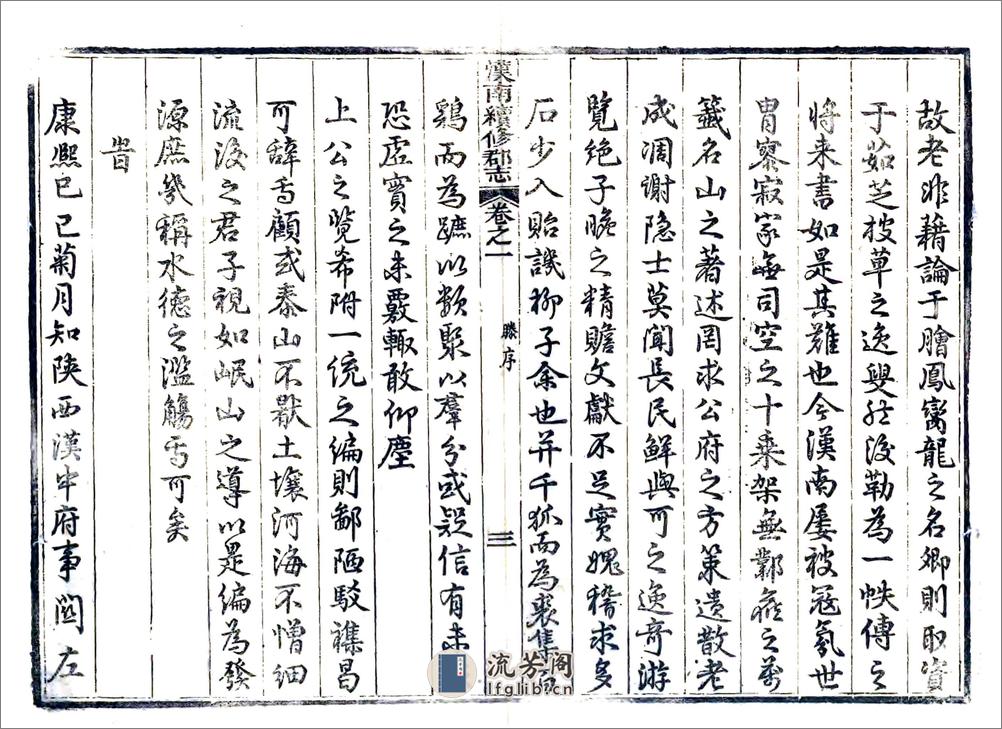 故老非藉論于膾鳳臠龍之名卿則取資
于茹芝披草之逸叟然後勒為一帙傳之
將来書如是其難也今漢南屡被冦氛世
胄寥寂家每司空之十乗架無鄴侯之萬
籤名山之著述罔求公府之方策遺散老
成凋謝隐士莫聞長民鮮與可之逸竒游
覽绝子瞻之精贍文獻不足實媿稽求多
石少入貽譏柳子余也并千狐而為裘集百
鷄而為蹠以類聚以羣分或疑信有未
恐虚實之未覈輙敢仰塵
上公之覽希附一統之编則鄙陋駁襍曷
可辞焉顧或泰山不猒土壤河海不憎細
流後之君子視如岷山之導以是编為發
源庶幾稱水徳之濫觴焉可矣
旹
康熙己巳菊月知陕西漢中府事閭左
漢南續修郡志
卷之一
滕序
三
流芳阁
lfglib.cn